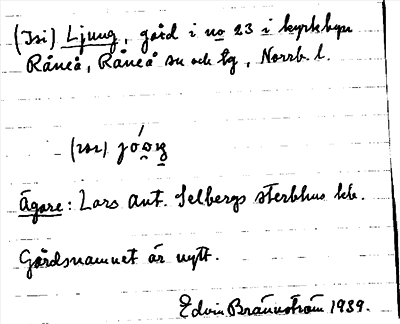 (Isi) Ljung, gård i no 23 i kyrkbyn
Råneå, Råneå sn och tg, Norrb. l.
Ägare: Lars Ant. Selbergs sterbhus
Gårdsnamnet är nytt.
Edvin Brännström 1939.